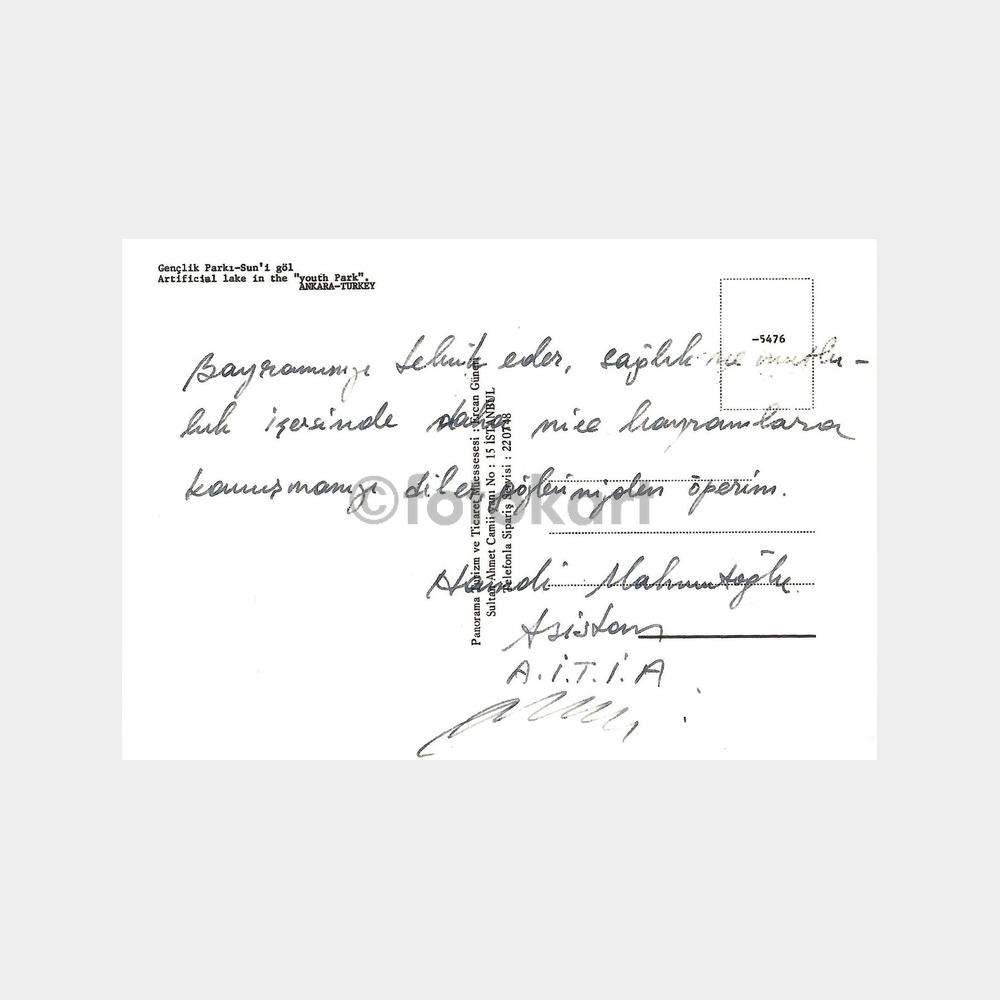 Gençlik Parkı-Sun'i göl
Artificial lake in the "youth Park".
ANKARA-TURKEY
-5476
Bayramınızı tebrik eder, sağlık ve mutlu-
luk içersinde daha nice bayramlara
kavuşmanızı diler gözlerinizden öperim.
Hamdi Mahmutoğlu
Asistan
A.İ.T.İ.A
Panorama Turizm ve Ticaret Müessesesi : Ercan Güner
Sultan Ahmet Camii yanı No : 15 İSTANBUL
Telefonla Sipariş Servisi : 220748
©fotokart